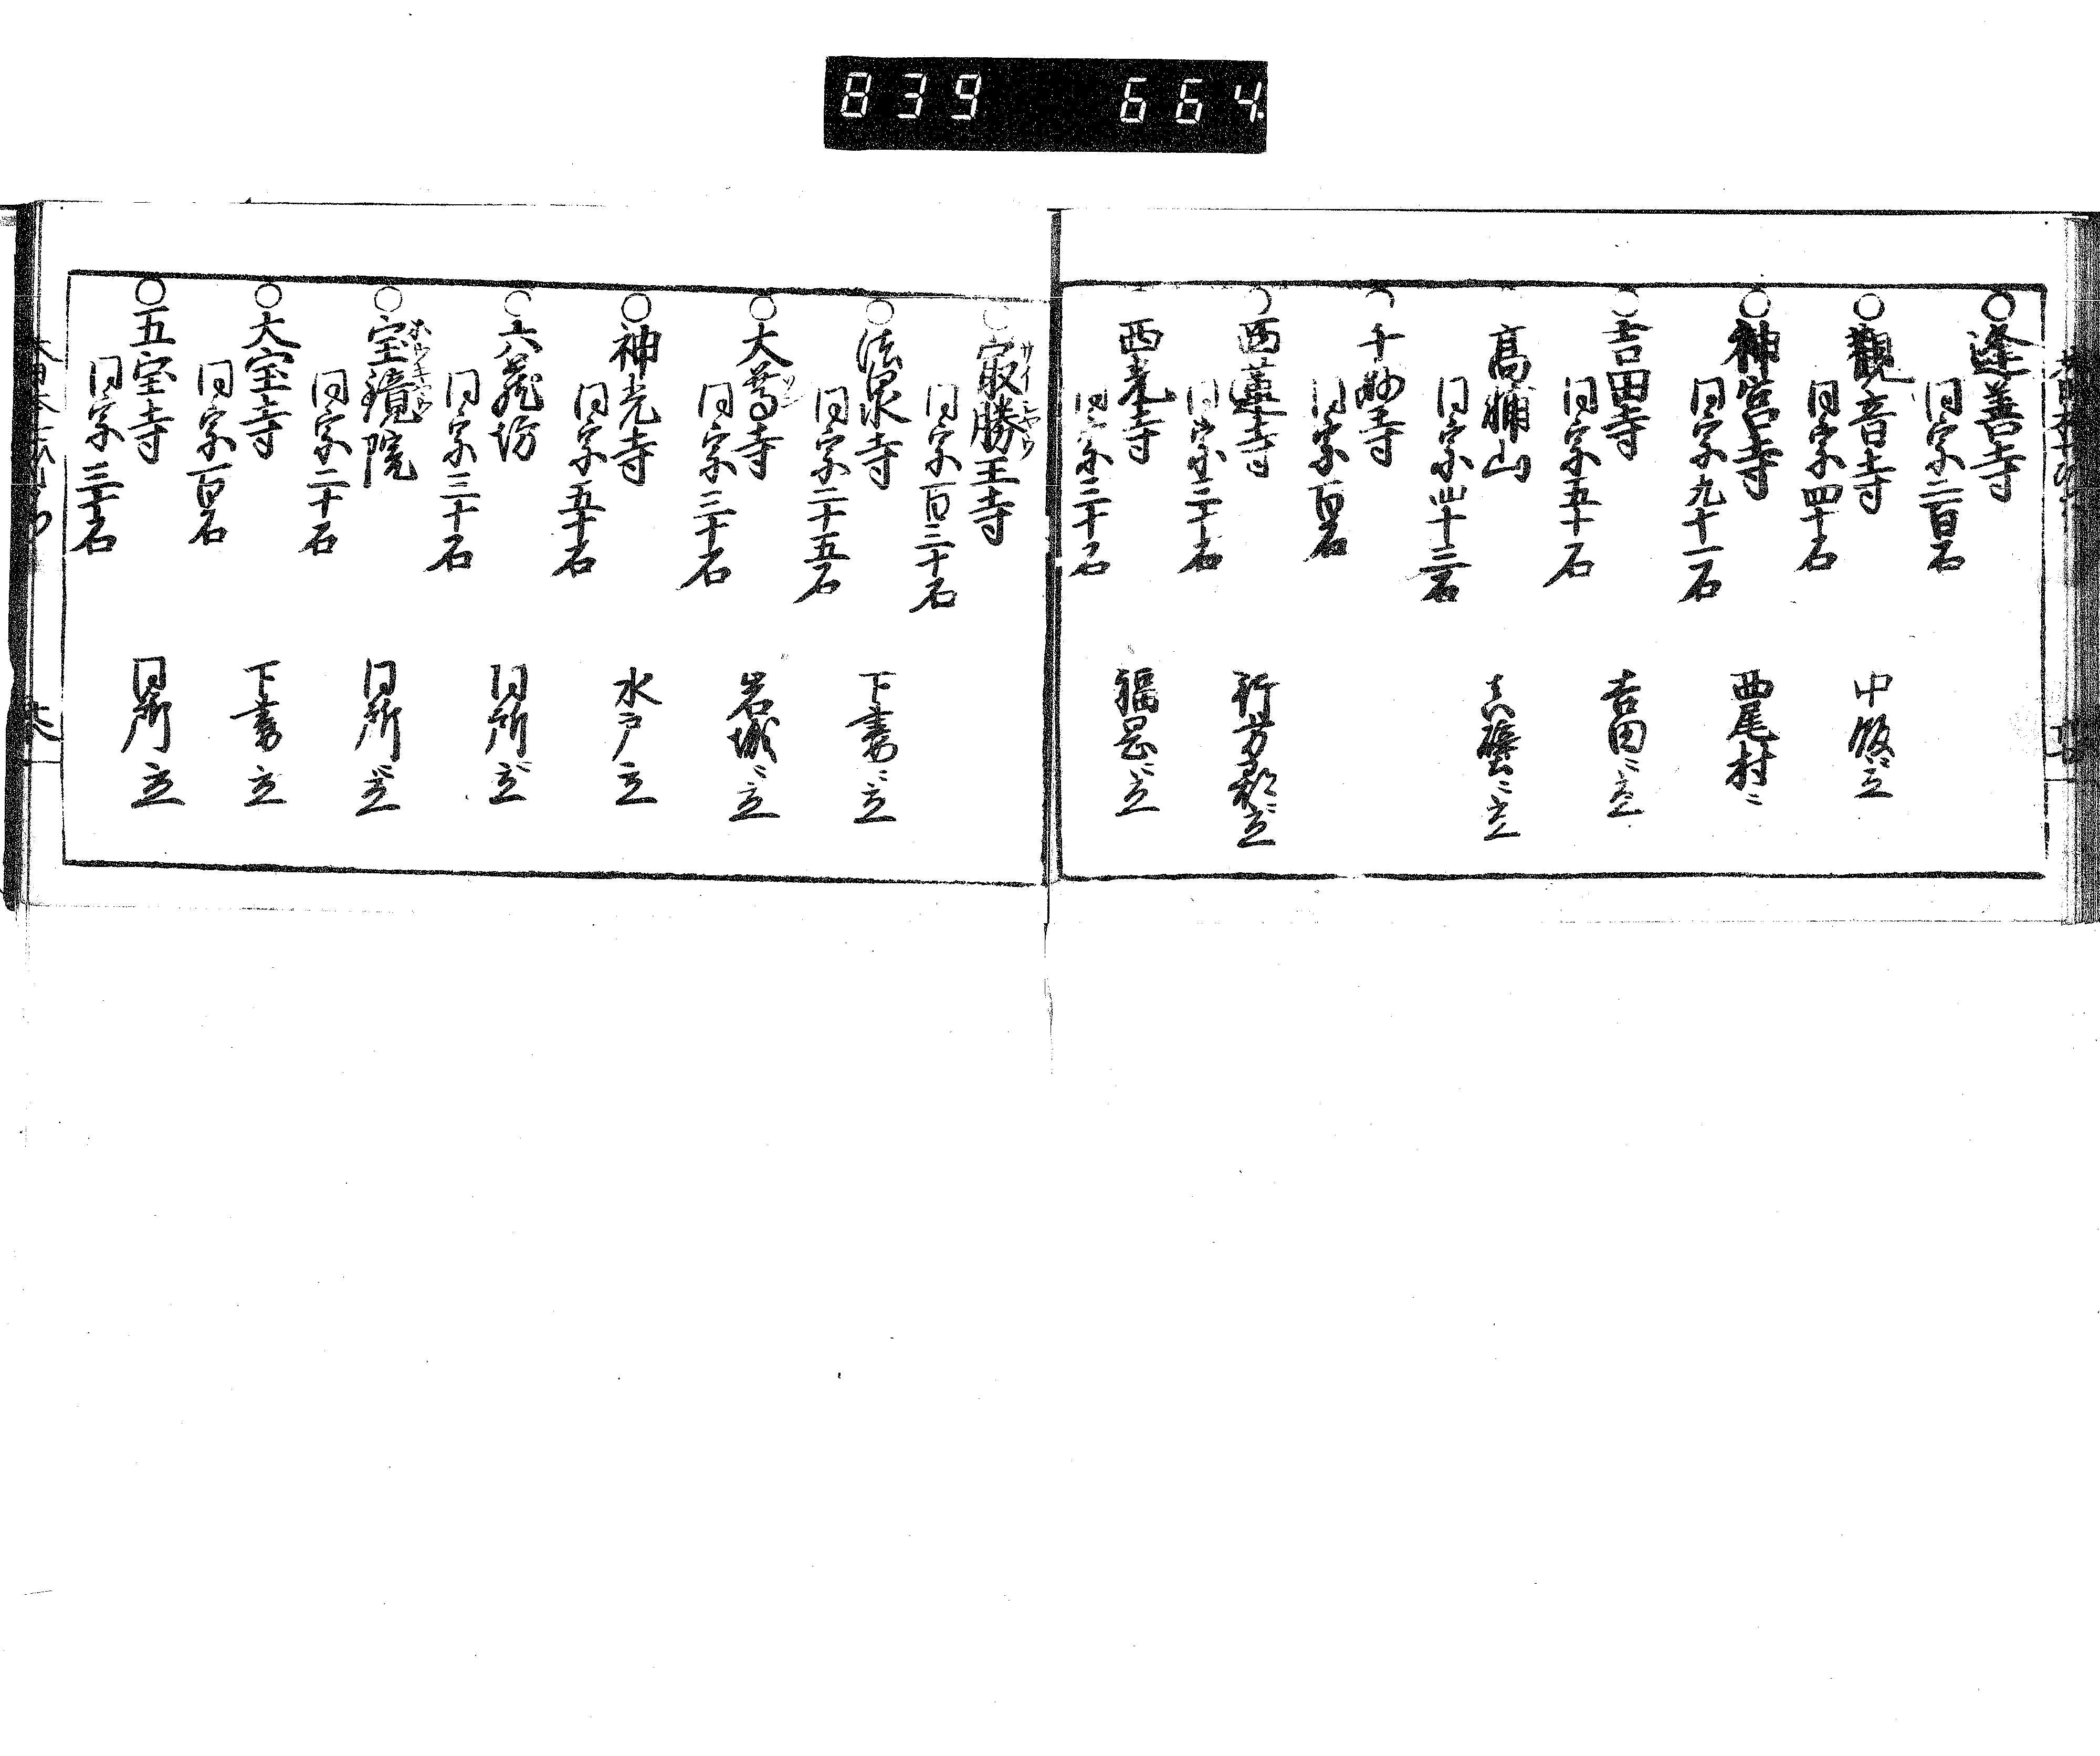 839 664
○逢善寺
同宗二百石
○觀音寺
同宗四十石 中坂ニ立
○神宮寺
同宗九十一石 西尾村ニ
○吉田寺
同宗五十石 吉田ニ立
高輔山
同宗四十三石 真壁ニ立
○千妙寺
同宗百石
○西蓮寺
同宗三十石 行方郡ニ立
西光寺
同宗二十石 福岡ニ立
○寂勝王寺
同宗百三十石
○法泉寺
同宗二十五石 下妻ニ立
○大尊寺
同宗三十石 岩城ニ立
○神光寺
同宗五十石 水戸立
○六蔵坊
同宗三十石 同所ニ立
○宝鏡院
同宗二十石 同所ニ立
○大宝寺
同宗百石 下妻立
○五宝寺
同宗三十石 同所立